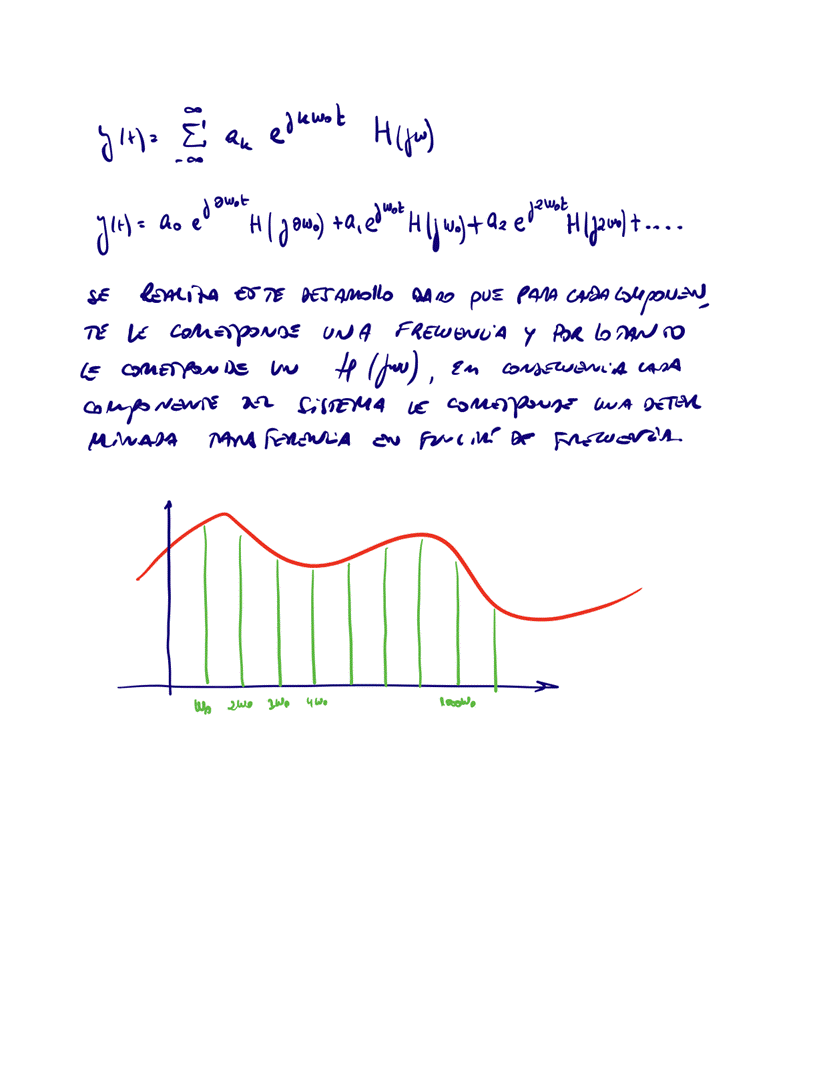 y(t) = Σ_{-∞}^{∞} a_k e^{jkω₀t} H(jω)
y(t) = a₀ e^{j0ω₀t} H(j0ω₀) + a₁ e^{jω₀t} H(jω₀) + a₂ e^{j2ω₀t} H(j2ω₀) + ....
SE REALIZA ESTE DESARROLLO DADO QUE PARA CADA COMPONEN
TE LE CORRESPONDE UNA FRECUENCIA Y POR LO TANTO
LE CORRESPONDE UN H(jω), EN CONSECUENCIA CADA
COMPONENTE DEL SISTEMA LE CORRESPONDE UNA DETER
MINADA TRANSFERENCIA EN FUNCIÓN DE FRECUENCIA.
ω₀ 2ω₀ 3ω₀ 4ω₀ 1000ω₀